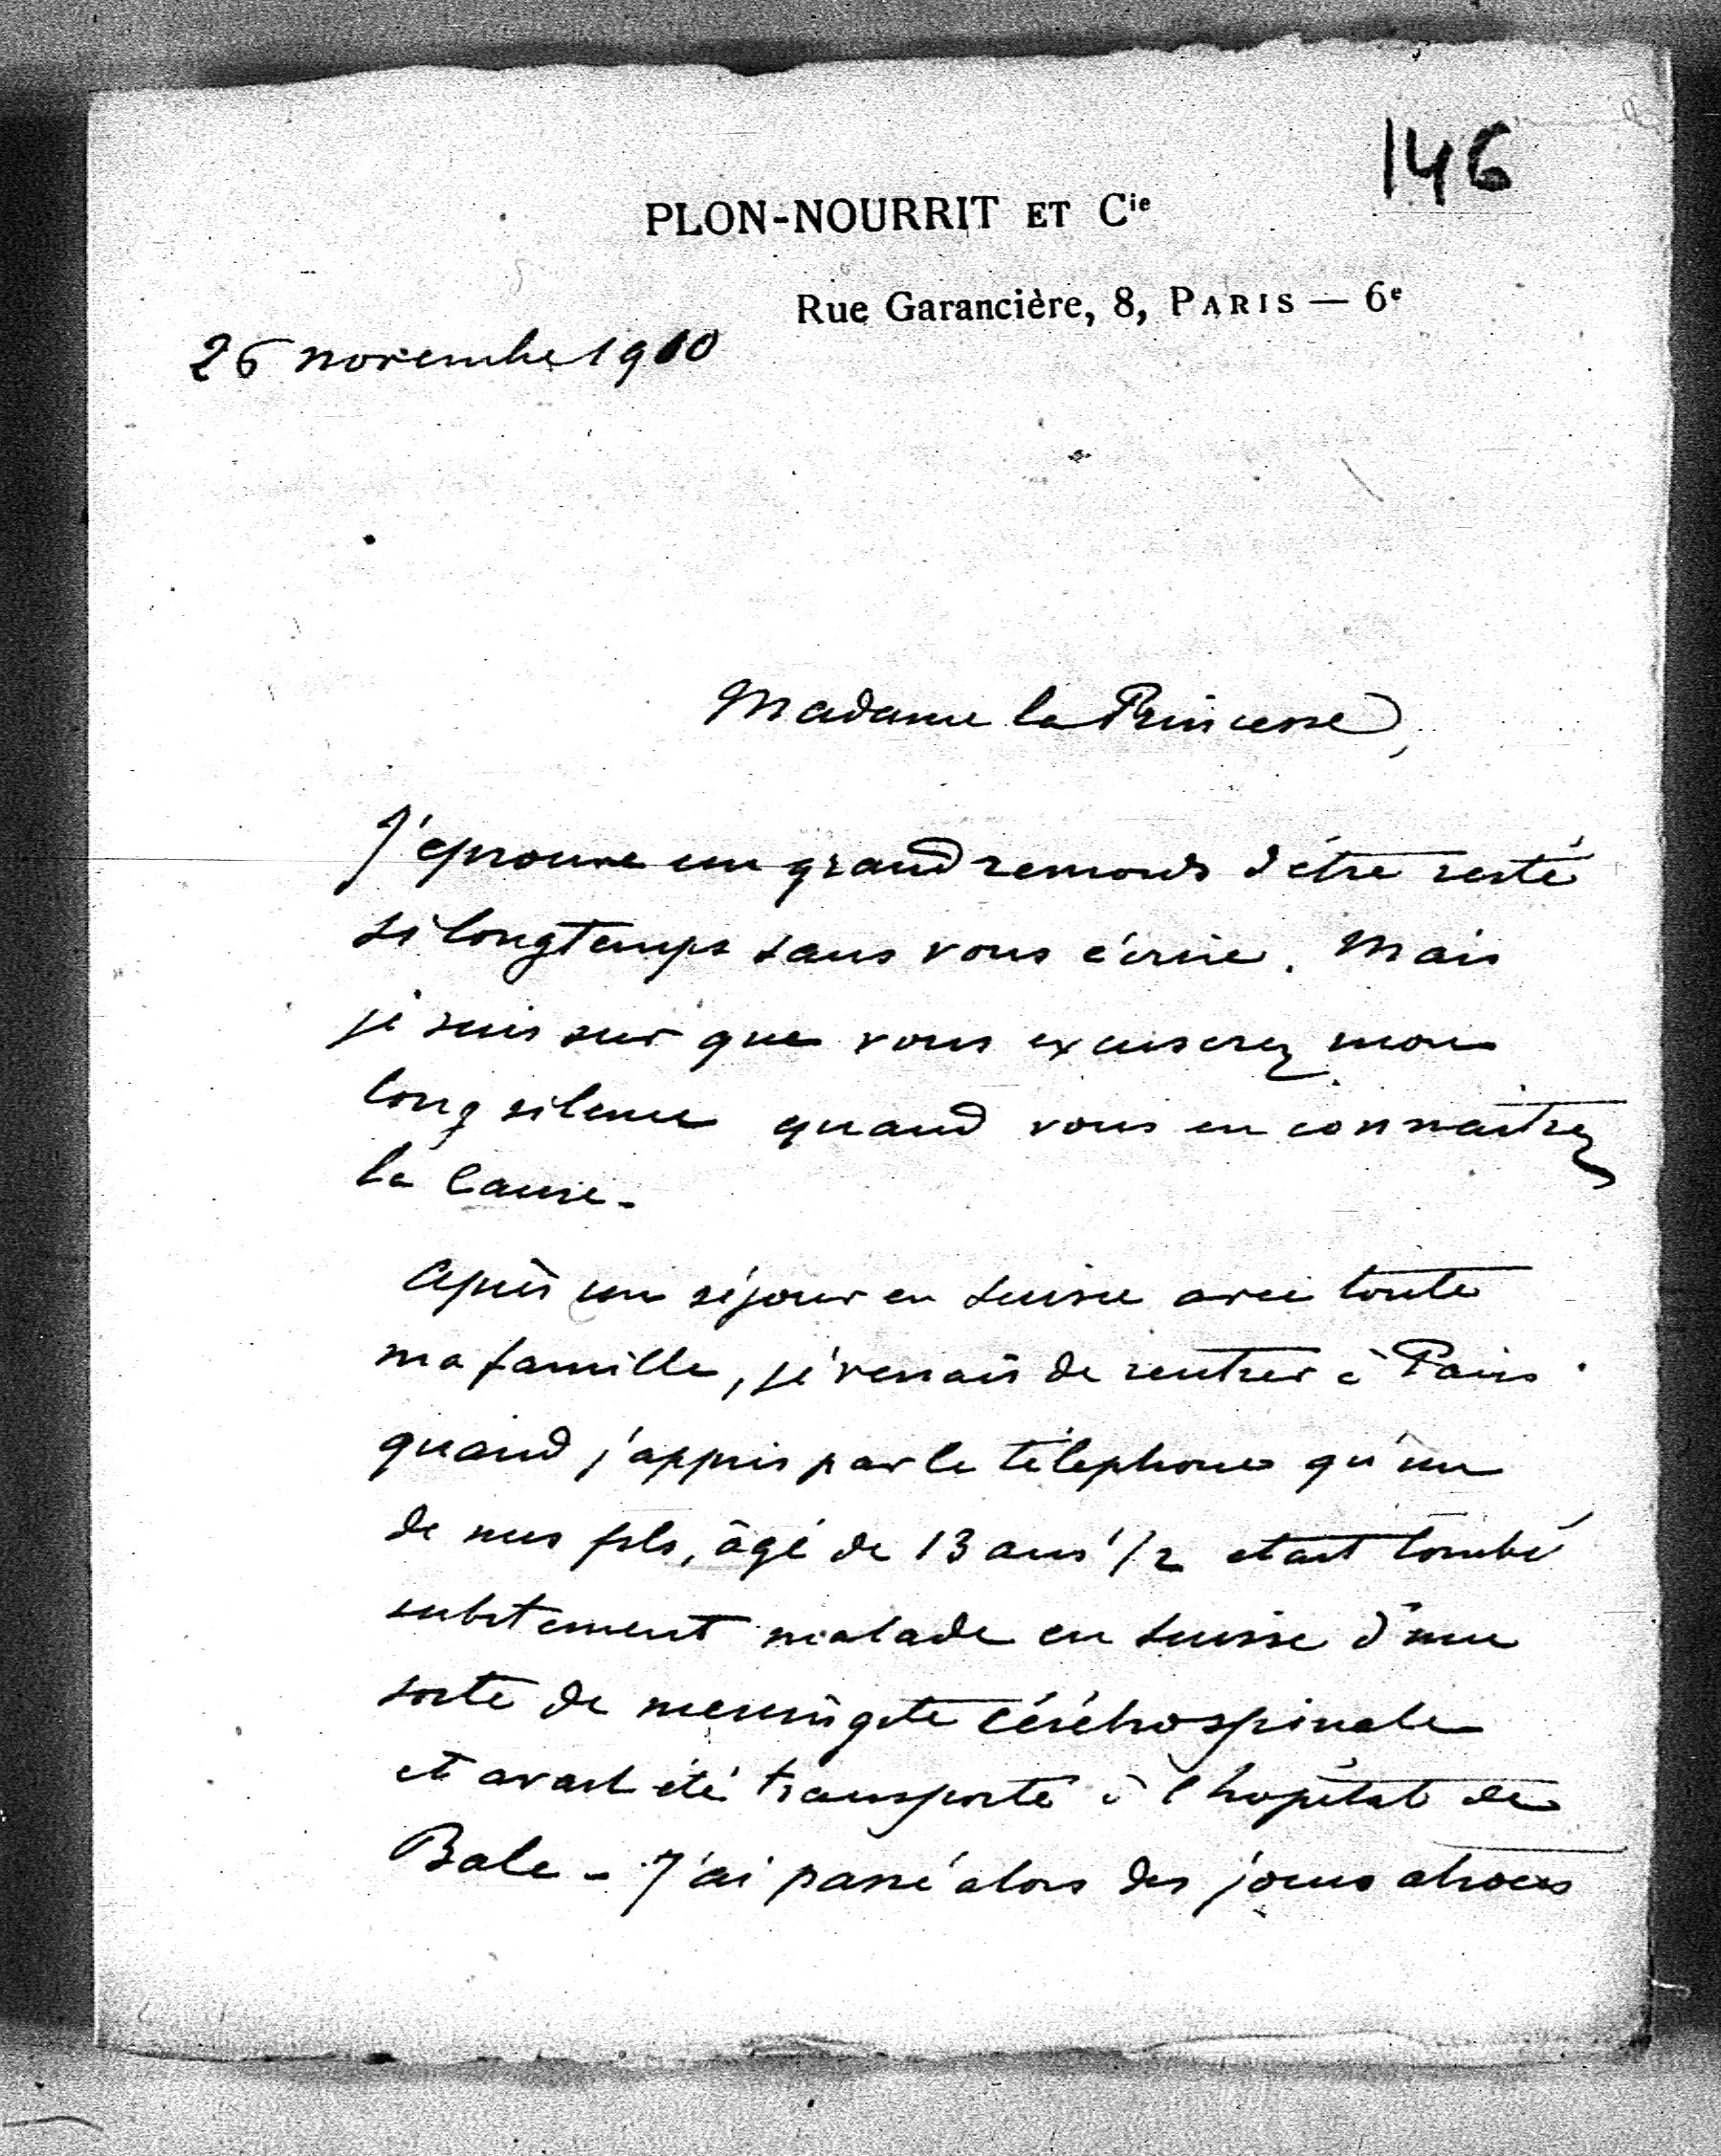 146
PLON-NOURRIT ET Cie
Rue Garancière, 8, PARIS — 6e
26 novembre 1910
Madame la Princesse,
J'éprouve un grand remords d'être resté
si longtemps sans vous écrire. Mais
je suis sur que vous excuserez mon
long silence quand vous en connaitrez
la cause.
Après un séjour en Suisse avec toute
ma famille, je venais de rentrer à Paris
quand j'appris par le téléphone qu'un
de mes fils, âgé de 13 ans 1/2 etait tombé
subitement malade en Suisse d'une
sorte de meningite cérébrospinale
et avait été transporté à l'hopital de
Bale - J'ai passé alors des jours atroces